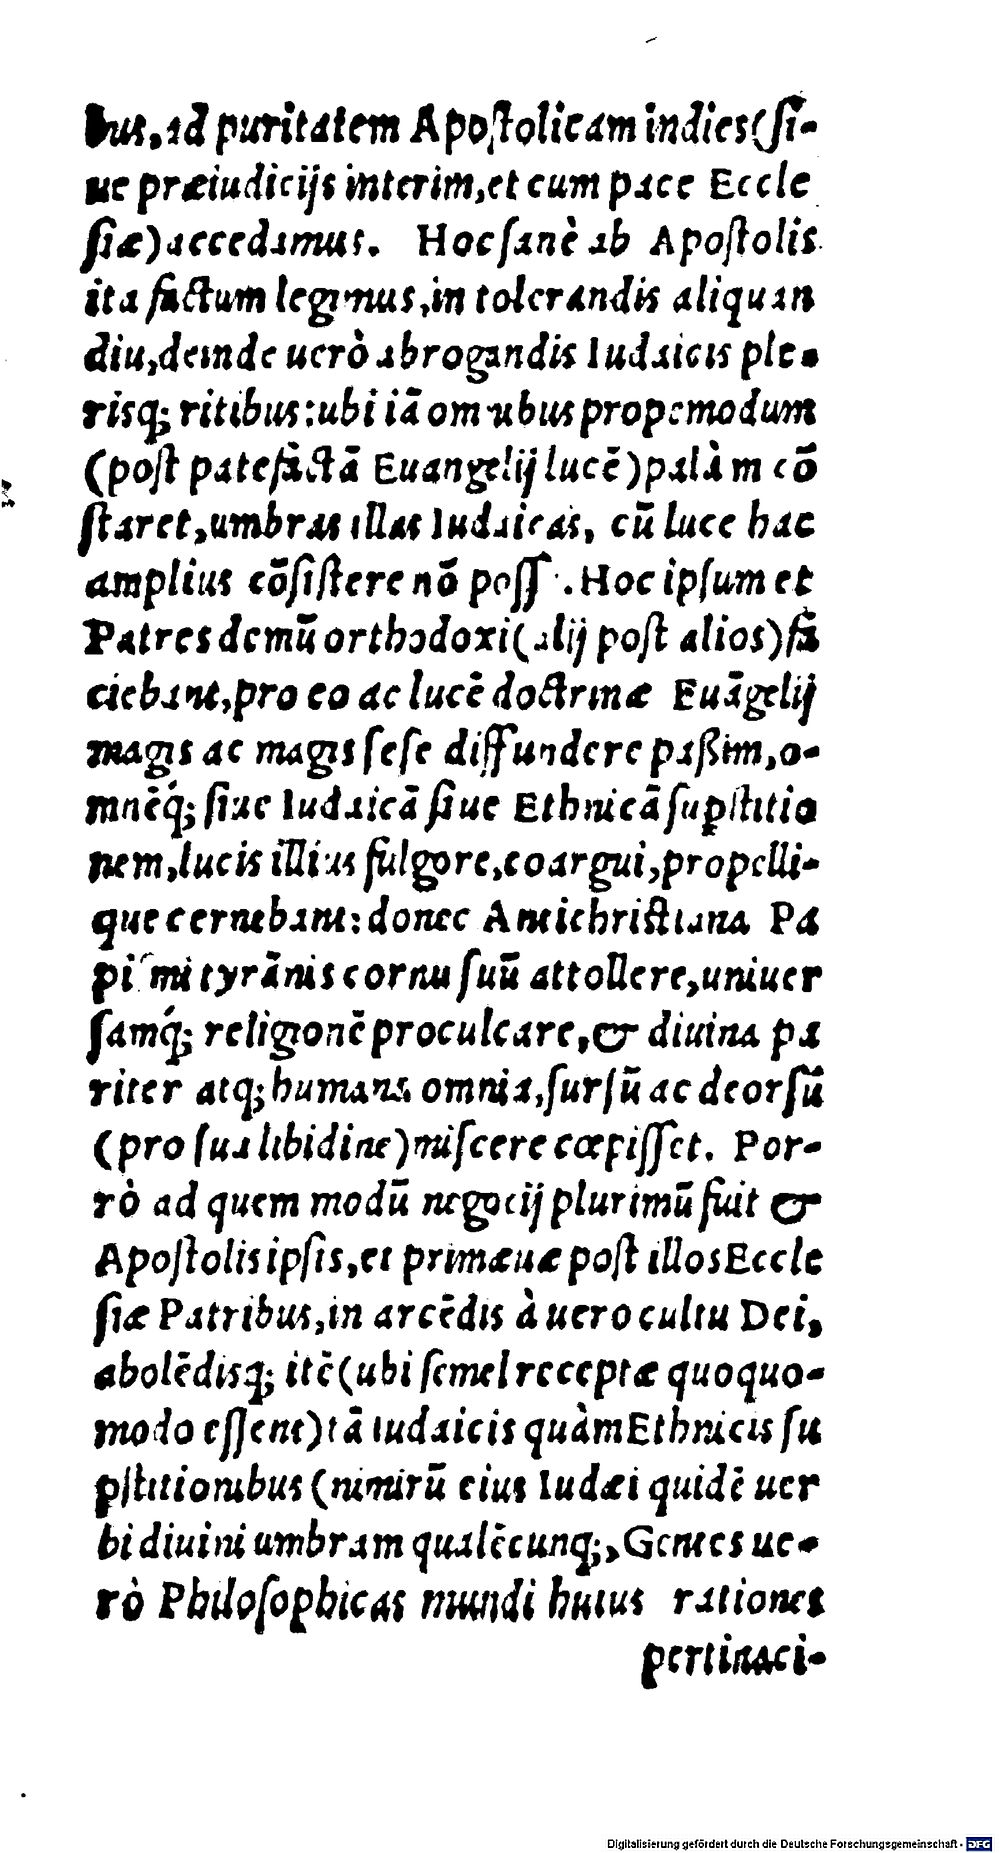 bus, ad puritatem Apostolicam indies (si-
ue præiudicijs interim, et cum pace Eccle
siæ) accedamus. Hoc sanè ab Apostolis
ita factum legimus, in tolerandis aliquan
diu, deinde uerò abrogandis Iudaicis ple-
risq; ritibus: ubi iā omnibus propemodum
(post patefactā Euangelij lucē) palàm cō
staret, umbras illas Iudaicas, cū luce hac
amplius cōsistere nō posse. Hoc ipsum et
Patres demū orthodoxi (alij post alios) fa
ciebant, pro eo ac lucē doctrinæ Euāgelij
magis ac magis sese diffundere paßim, o-
mnēq́; siue Iudaicā siue Ethnicā sup̱stitio
nem, lucis illius fulgore, coargui, propelli-
que cernebant: donec Antichristiana Pa
pismi tyrānis cornu suū attollere, uniuer
samq́; religionē proculcare, & diuina pa
riter atq; humana omnia, sursū ac deorsū
(pro sua libidine) miscere cœpisset. Por-
rò ad quem modū negocij plurimū fuit &
Apostolis ipsis, et primæuæ post illos Eccle
siæ Patribus, in arcēdis à uero cultu Dei,
abolēdisq; itē (ubi semel receptæ quoquo-
modo essent) tā Iudaicis quàm Ethnicis su
p̱stitionibus (nimirū eius Iudæi quidē uer
bi diuini umbram qualēcunq;, Gentes ue-
rò Philosophicas mundi huius rationes
pertinaci-
Digitalisierung gefördert durch die Deutsche Forschungsgemeinschaft - DFG